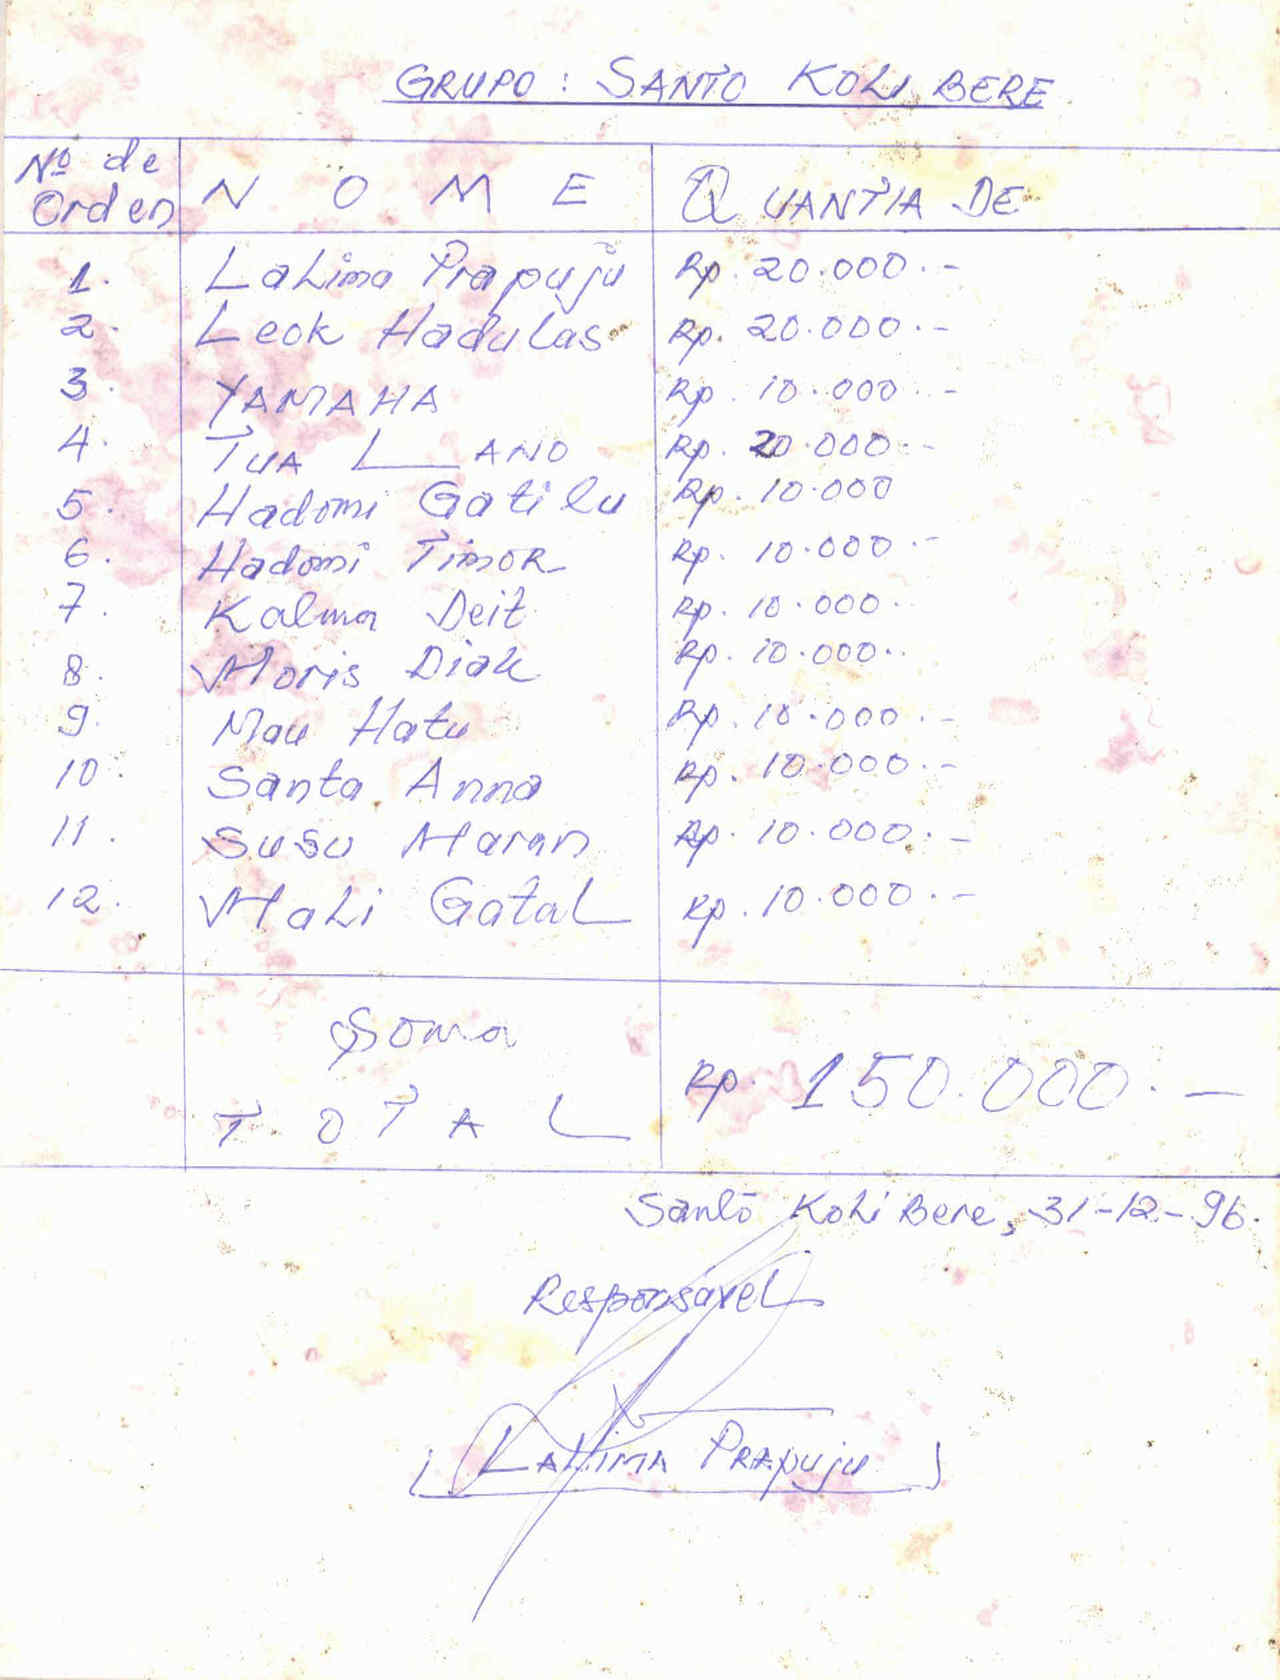 GRUPO : SANTO KOLI BERE
Nº de Orden N O M E QUANTIA DE
1. Lalima Prapuju Rp. 20.000.-
2. Leok Hadulas Rp. 20.000.-
3. YAMAHA Rp. 10.000.-
4. TUA LANO Rp. 20.000.-
5. Hadomi Gatilu Rp. 10.000
6. Hadomi TIMOR Rp. 10.000.-
7. Kalma Deit Rp. 10.000..
8. Moris Diak Rp. 10.000..
9. Mau Hatu Rp. 10.000.-
10. Santa Anna Rp. 10.000.-
11. Susu Maran Rp. 10.000.-
12. Mali Gatal Rp. 10.000.-
Soma
T O T A L Rp. 150.000.-
Santo Koli Bere, 31-12-96.
Responsavel
LALIMA PRAPUJU